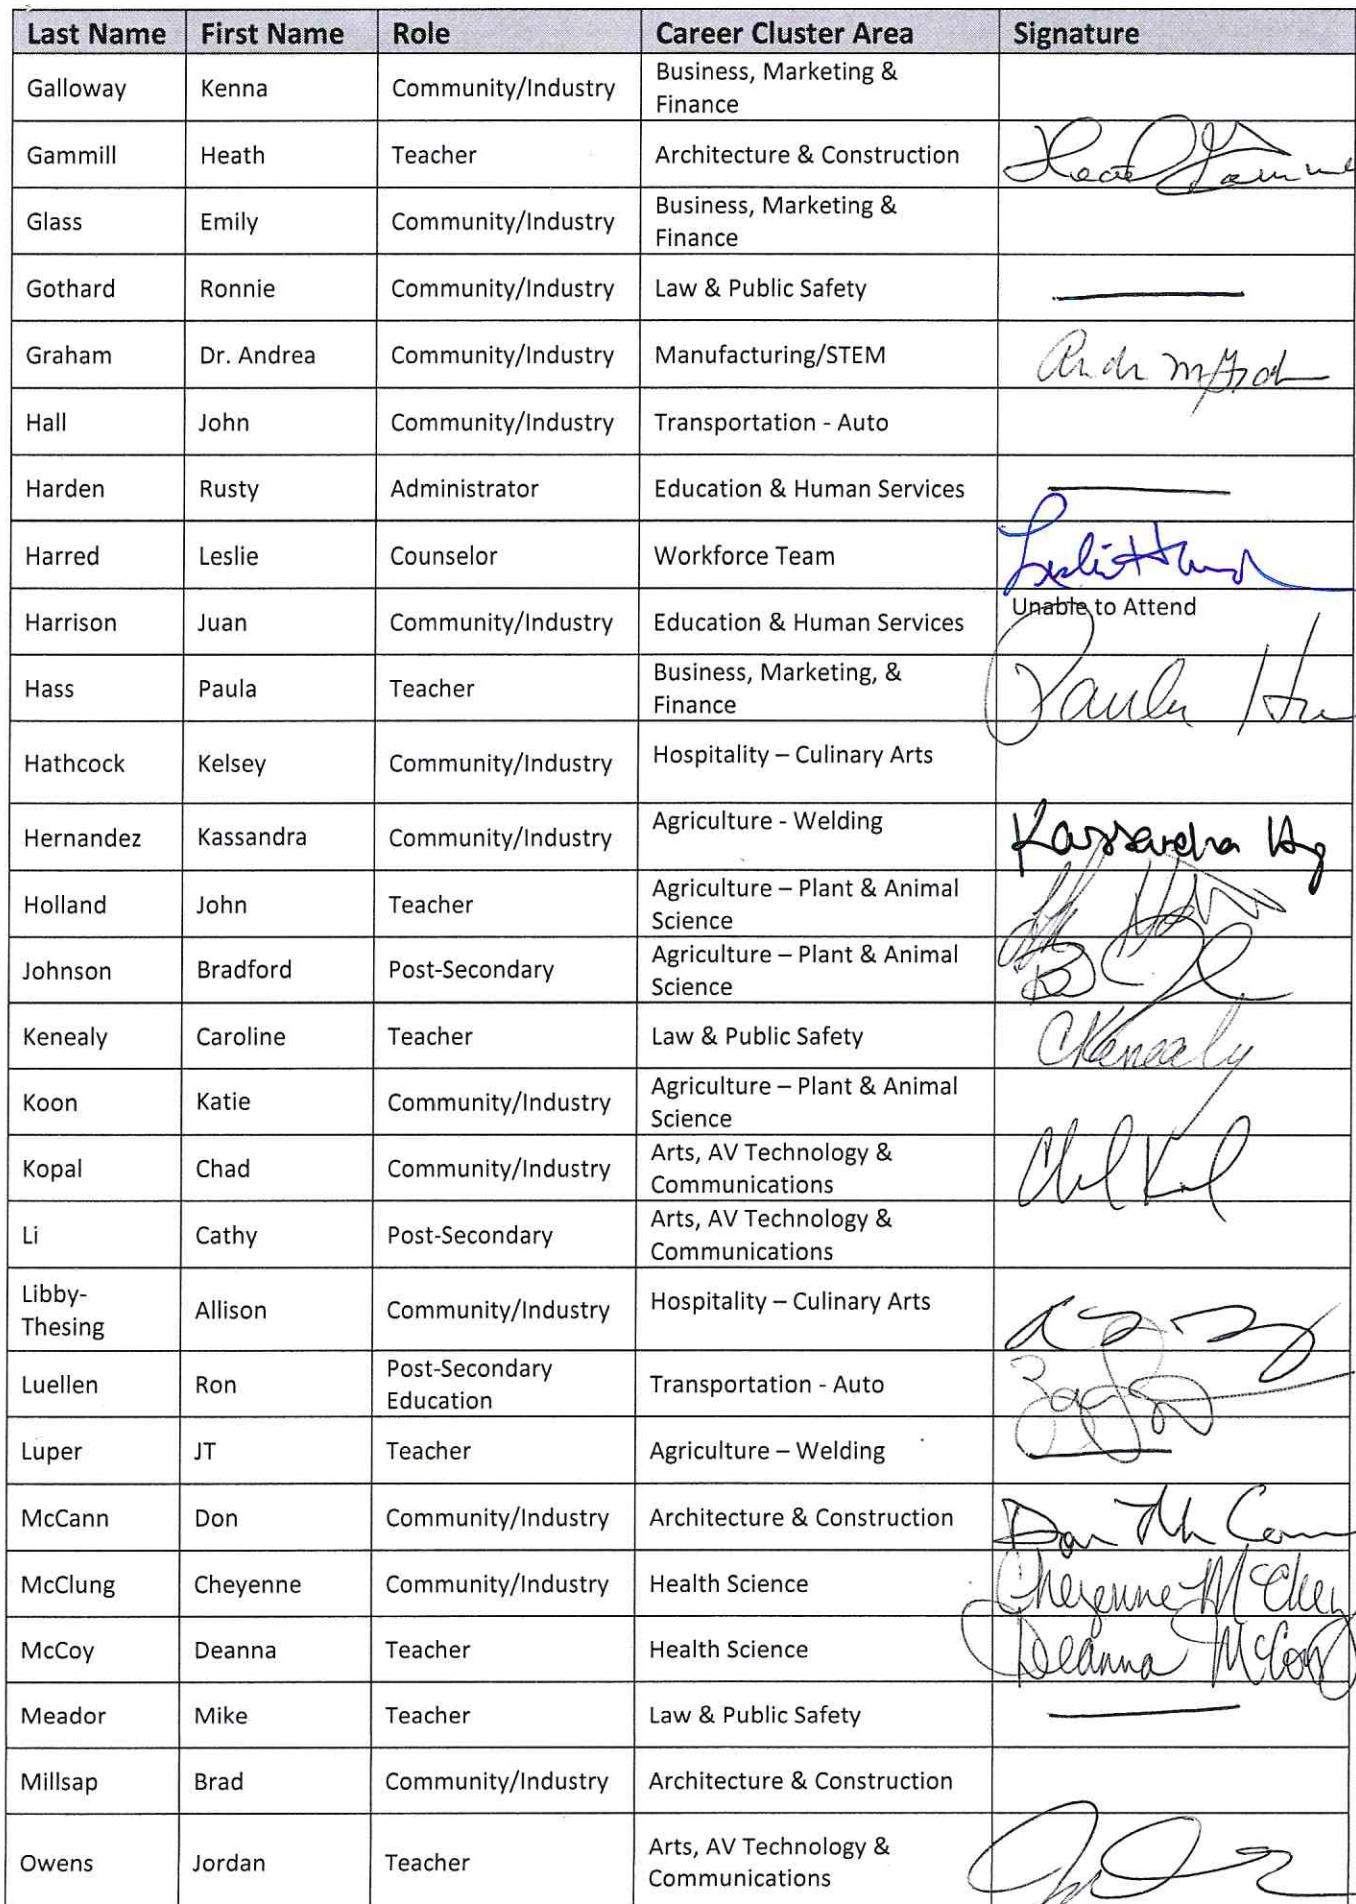 Last Name First Name Role Career Cluster Area Signature
Galloway Kenna Community/Industry Business, Marketing &
Finance
Gammill Heath Teacher Architecture & Construction
Glass Emily Community/Industry Business, Marketing &
Finance
Gothard Ronnie Community/Industry Law & Public Safety
Graham Dr. Andrea Community/Industry Manufacturing/STEM
Hall John Community/Industry Transportation - Auto
Harden Rusty Administrator Education & Human Services
Harred Leslie Counselor Workforce Team
Harrison Juan Community/Industry Education & Human Services Unable to Attend
Hass Paula Teacher Business, Marketing, &
Finance Paula
Hathcock Kelsey Community/Industry Hospitality – Culinary Arts
Hernandez Kassandra Community/Industry Agriculture - Welding Kassandra
Holland John Teacher Agriculture – Plant & Animal
Science
Johnson Bradford Post-Secondary Agriculture – Plant & Animal
Science
Kenealy Caroline Teacher Law & Public Safety CKenealy
Koon Katie Community/Industry Agriculture – Plant & Animal
Science
Kopal Chad Community/Industry Arts, AV Technology &
Communications
Li Cathy Post-Secondary Arts, AV Technology &
Communications
Libby-
Thesing Allison Community/Industry Hospitality – Culinary Arts
Luellen Ron Post-Secondary
Education Transportation - Auto
Luper JT Teacher Agriculture – Welding
McCann Don Community/Industry Architecture & Construction Don
McClung Cheyenne Community/Industry Health Science Cheyenne
McCoy Deanna Teacher Health Science Deanna McCoy
Meador Mike Teacher Law & Public Safety
Millsap Brad Community/Industry Architecture & Construction
Owens Jordan Teacher Arts, AV Technology &
Communications